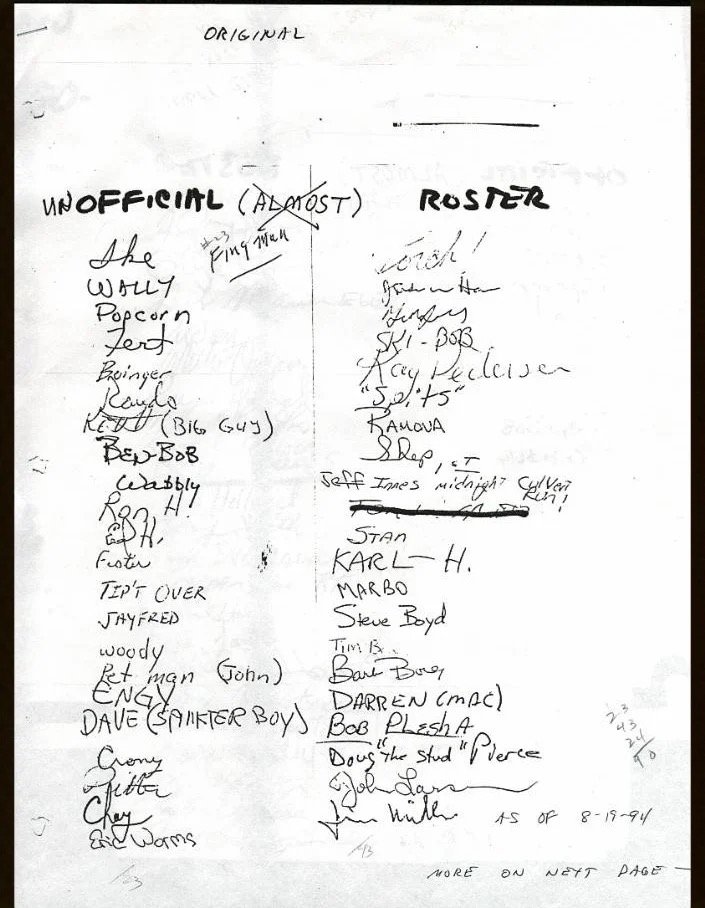 ORIGINAL
UNOFFICIAL (ALMOST) ROSTER
#23
Fing Man
Ike
WALLY
Popcorn
Fert
Boinger
Rando
(BIG GUY)
BEN-BOB
Wabbly
Ron H
Ed H.
Foster
TIP'T OVER
JAYFRED
woody
Pet man (John)
ENGY
DAVE (SANKTER BOY)
Crony
Chey
Eric Worms
23
Torch!
SKI-BOB
Ray Pedersen
"Spits"
RAMOVA
Shep, ET
Jeff Innes midnight Culvert
Run!
STAN
KARL-H.
MARBO
Steve Boyd
Tim B.
DARREN (MAC)
BOB PLESHA
Doug "The Stud" Pierce
John Larson
Jim
AS OF 8-19-94
43
23
43
24
90
MORE ON NEXT PAGE